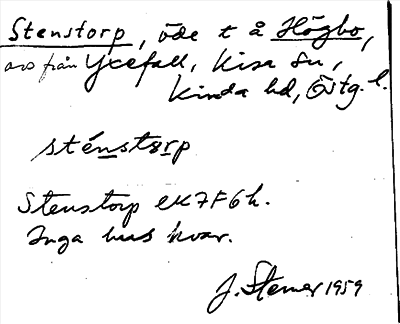 Stenstorp, öde t å Högbo,
avs från Ycefall, Kisa sn,
Kinda hd, Östg. l.
sténstɷrp
Stenstorp ek 7F6h.
Inga hus kvar.
J. Stemer 1959